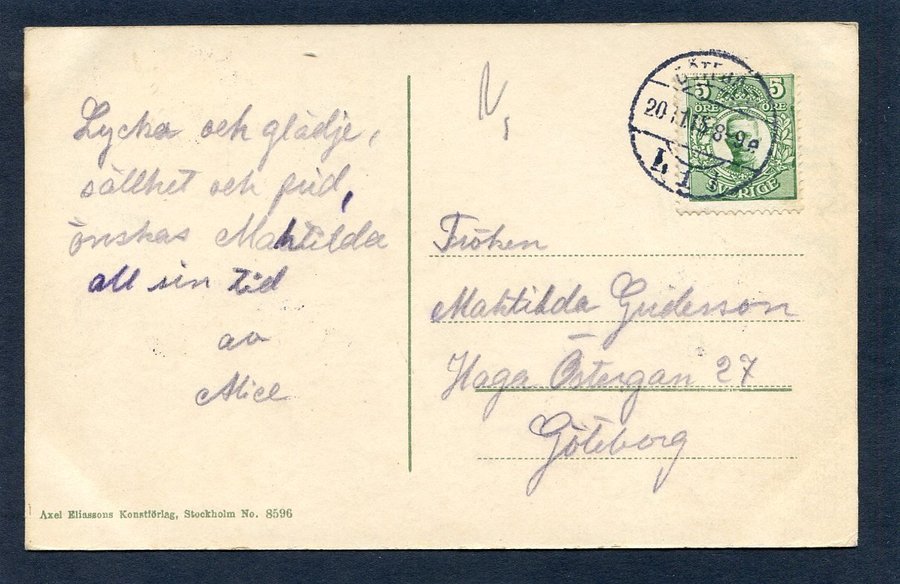 Lycka och glädje,
sällhet och frid,
önskas Mahtilda
all sin tid
av
Alice
Fröken
Mahtilda Gudesson
Haga Östergan 27
Göteborg
5 5
ÖRE ÖRE
SVERIGE
GÖTEB
20.1.15.8-9 e
Axel Eliassons Konstförlag, Stockholm No. 8596